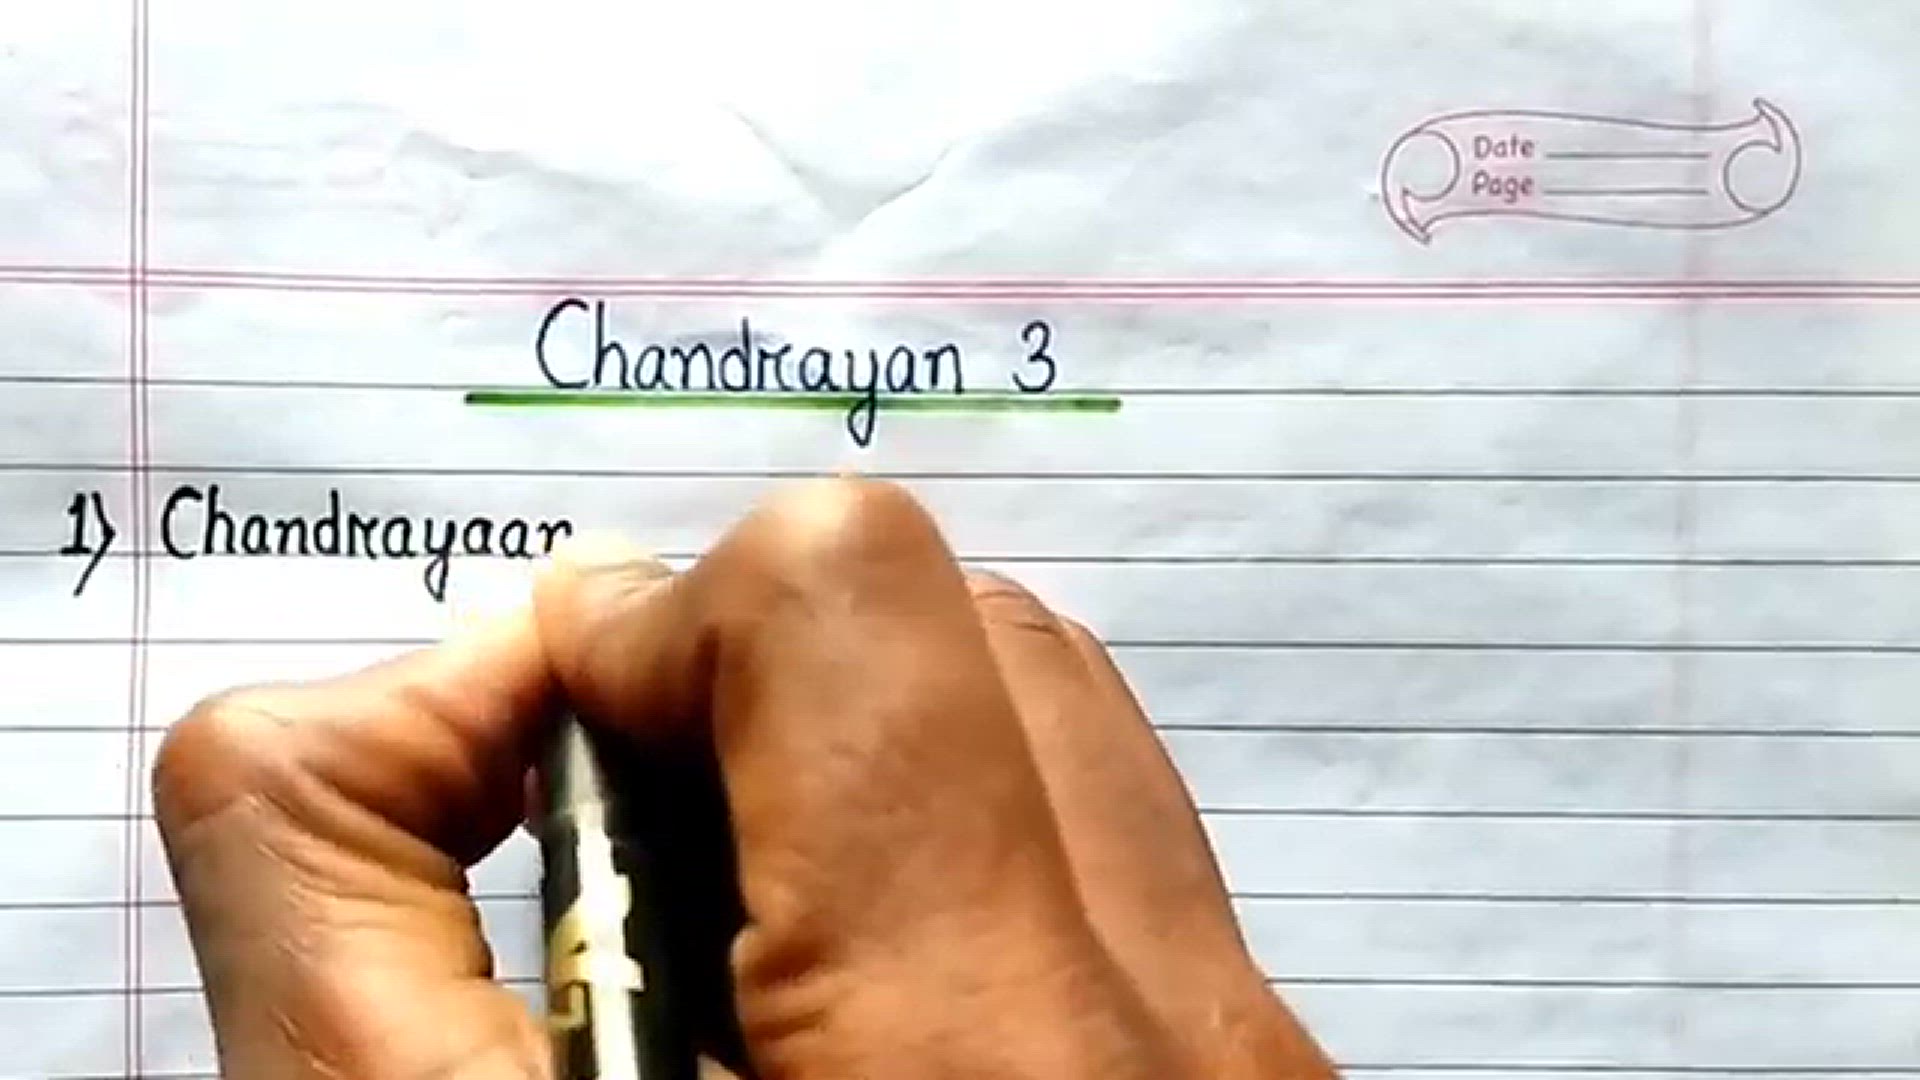 Date
Page
Chandrayan 3
1) Chandrayaan